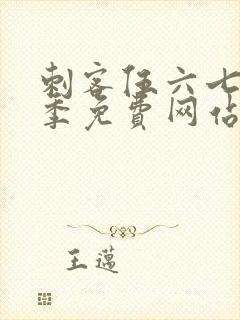 刺客伍六七
季免费网站
王邁